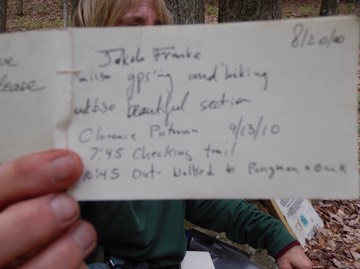 lease
8/20/10
Jakob Franke
gps'ing and hiking
beautiful section
Clarence Putman 9/13/10
7:45 Checking trail
10:45 Out - Walked to Pungman + Back